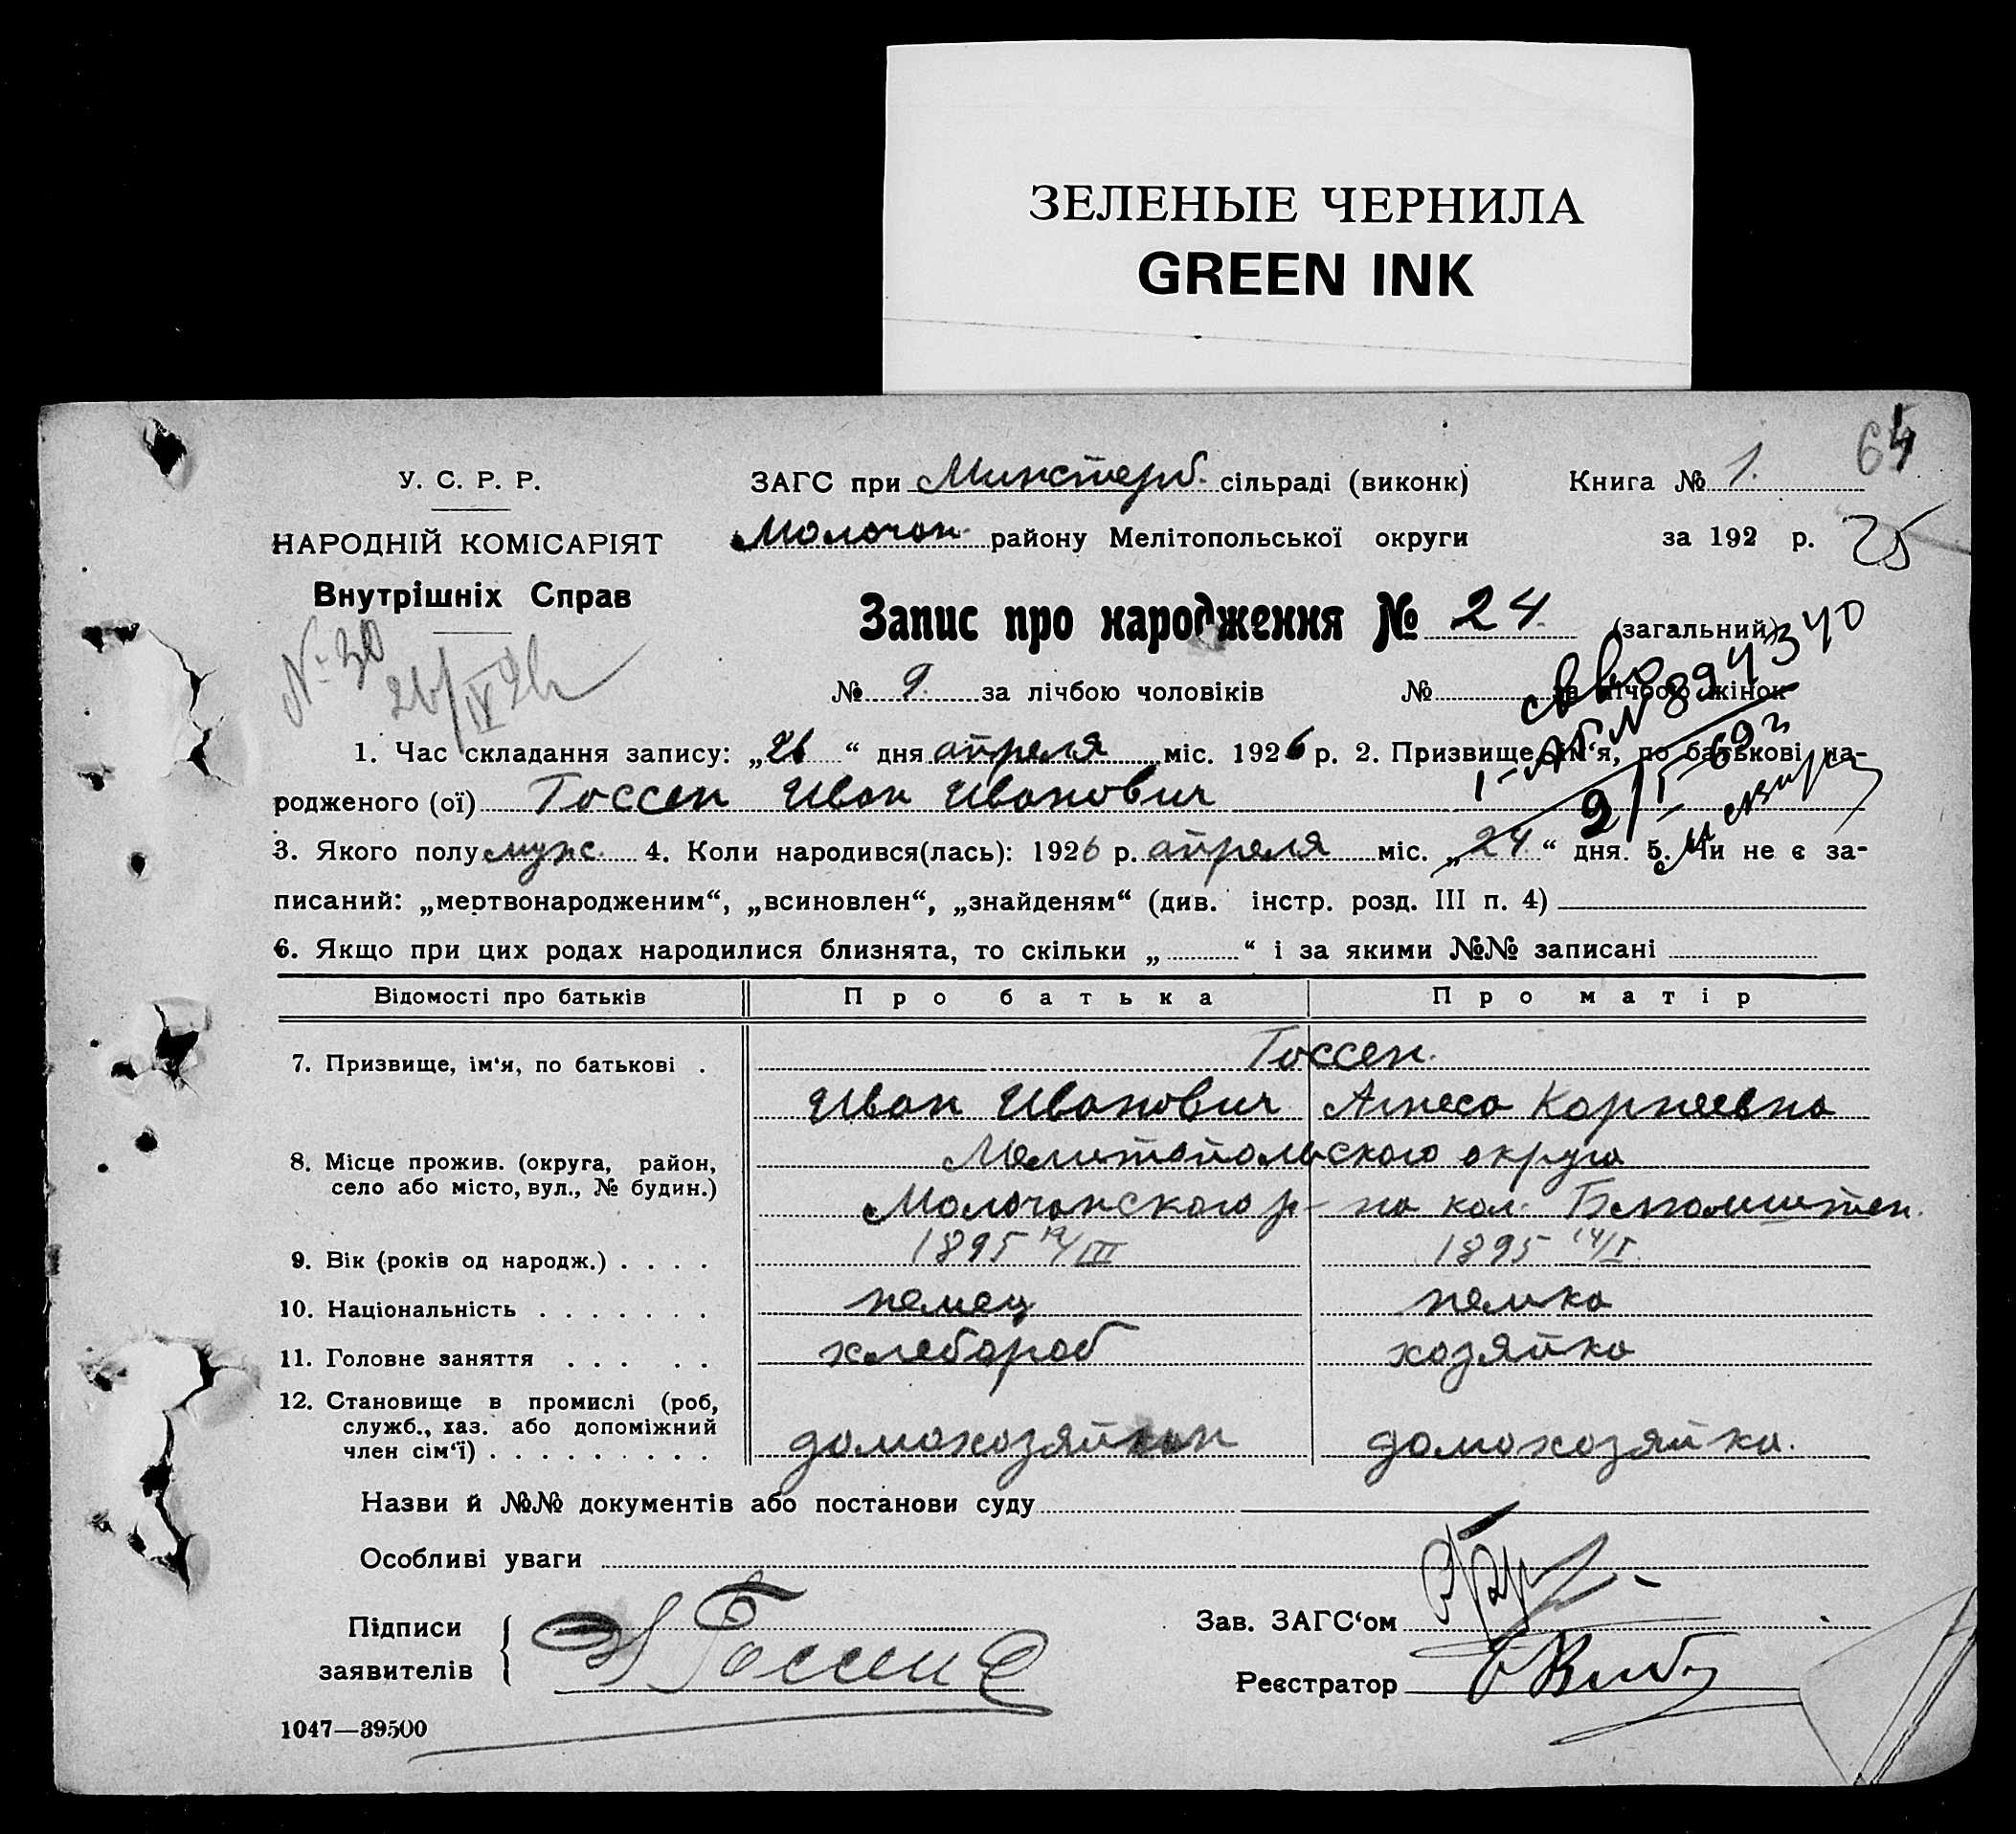 ЗЕЛЕНЫЕ ЧЕРНИЛА
GREEN INK
64
У. С. Р. Р.
НАРОДНІЙ КОМІСАРІЯТ
Внутрішніх Справ
№ 30
26/IV 26
ЗАГС при Минстерб. сільраді (виконк) Книга № 1.
Молочан. району Мелітопольської округи за 192 р. 25
Запис про народження № 24. (загальний)
№ 9. за лічбою чоловіків № за лічбою жінок
1. Час складання запису: „26“ дня апреля міс. 1926 р. 2. Призвище, ім‘я, по батькові на-
родженого (ої) Тоссен Иван Иванович
I-АП № 894340
3. Якого полу муж. 4. Коли народився(лась): 1926 р. апреля міс. „24“ дня. 5. Чи не є за-
писаний: „мертвонародженим“, „всиновлен“, „знайденям“ (див. інстр. розд. III п. 4)
6. Якщо при цих родах народилися близнята, то скільки „ “ і за якими №№ записані
Відомості про батьків Про батька Про матір
7. Призвище, ім‘я, по батькові . Тоссен.
Иван Иванович Агнеса Корнеевна
8. Місце прожив. (округа, район, село або місто, вул., № будин.) Мелитопольского округа
Молочанского р-на кол. Блюмштен.
9. Вік (років од народж.) . . . . 1895 19/III 1895 14/I.
10. Національність . . . . . . . немец немка
11. Головне заняття . . . . . хлебороб хозяйка
12. Становище в промислі (роб, служб., хаз. або допоміжний член сім‘ї) . . . . . . . . . домохозяин домохозяйка.
Назви й №№ документів або постанови суду
Особливі уваги
Підписи заявителів
Зав. ЗАГС‘ом
Реєстратор
1047—39500